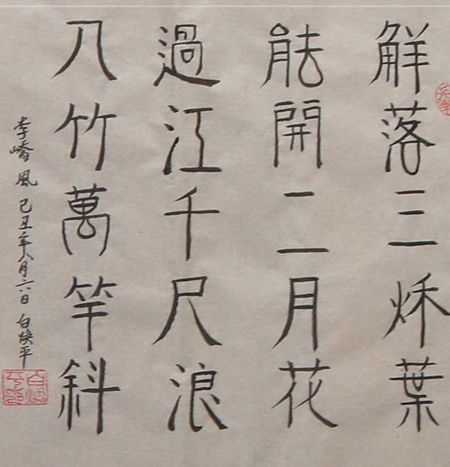 觧落三秋葉
能開二月花
過江千尺浪
入竹萬竿斜
李嶠風 己丑年八月六日 白焕平